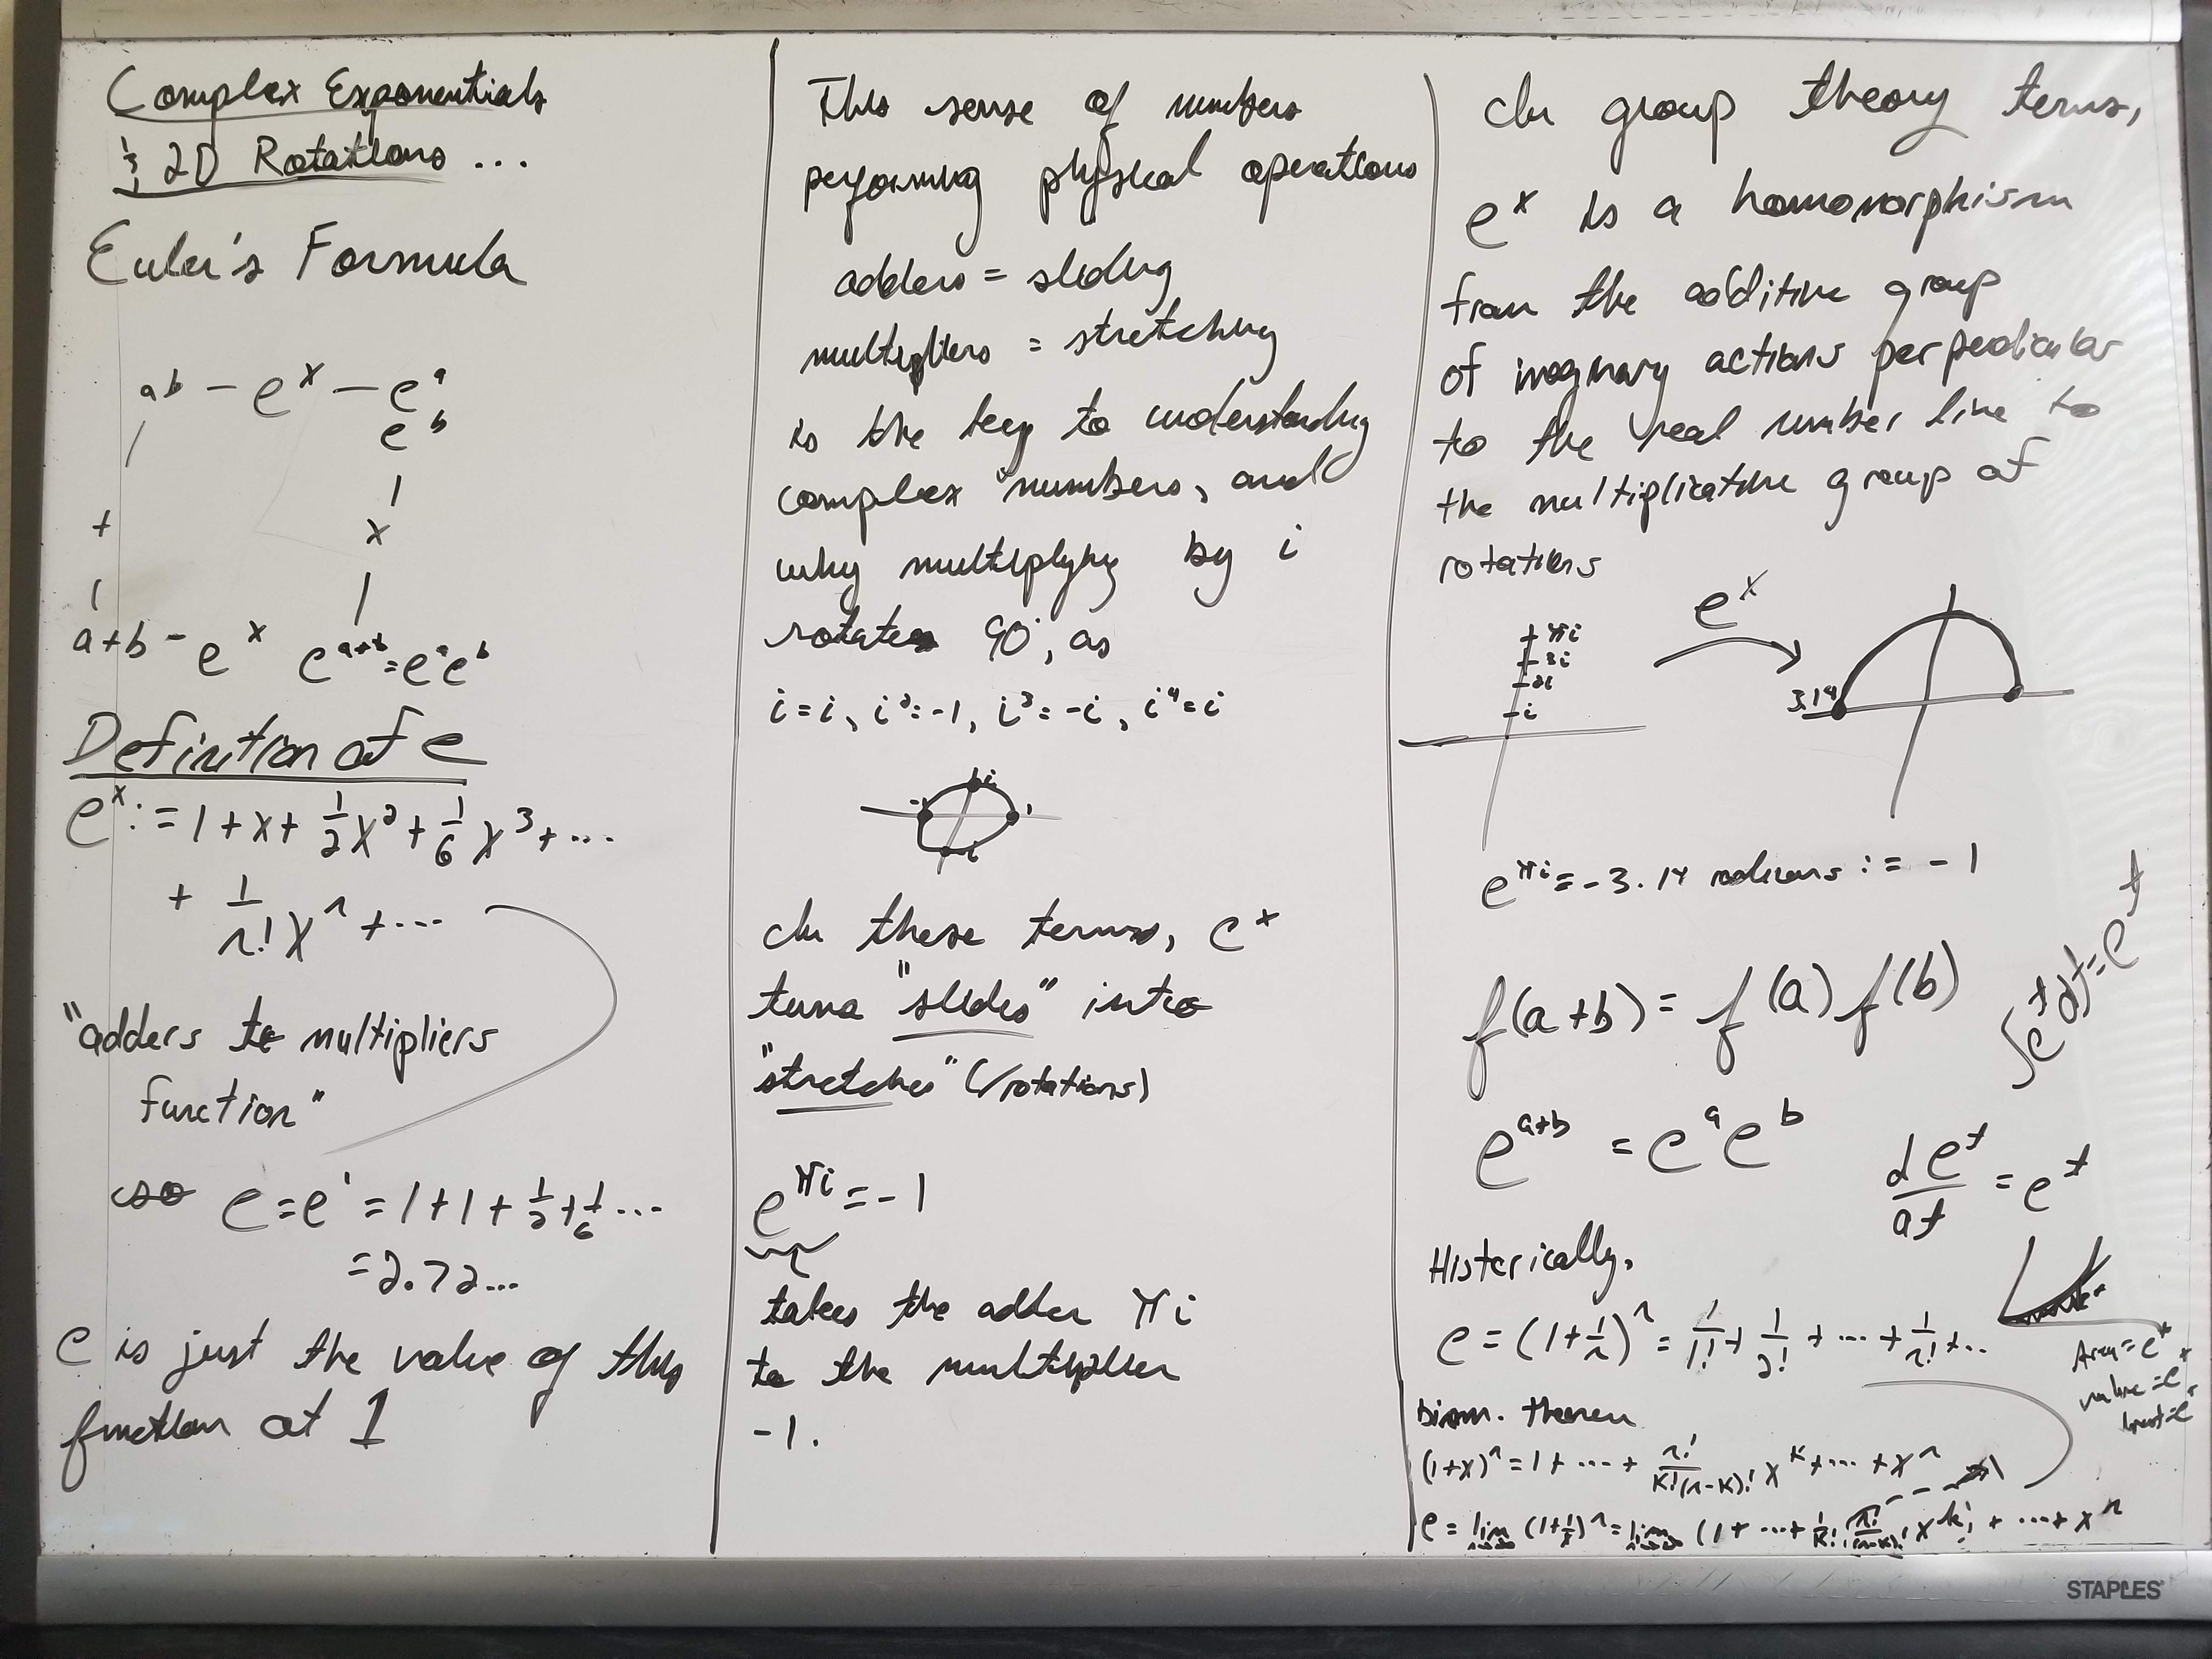 Complex Exponentials
& 2D Rotations ...
Euler's Formula
ab - e^x - e^a
e^b
+
x
a+b - e^x e^(a+b) = e^a e^b
Definition of e
e^x := 1 + x + 1/2 x^2 + 1/6 x^3 + ...
+ 1/n! x^n + ...
"adders to multipliers
function"
so e = e^1 = 1 + 1 + 1/2 + 1/6 ...
= 2.72...
e is just the value of this
function at 1
This sense of numbers
performing physical operations
adders = sliding
multipliers = stretching
is the key to understanding
complex "numbers, and
why multiplying by i
rotates 90°, as
i = i, i^2 = -1, i^3 = -i, i^4 = i
i
-1
1
-i
In these terms, e^x
turns "slides" into
"stretches" (/rotations)
e^(πi) = -1
takes the adder πi
to the multiplier
-1.
In group theory terms,
e^x is a homomorphism
from the additive group
of imaginary actions perpedicular
to the real number line to
the multiplicative group of
rotations
e^x
πi
3i
2i
i
3.14
e^(πi) = -3.14 radians := -1
f(a+b) = f(a) f(b)
∫e^t dt = e^t
e^(a+b) = e^a e^b
d e^t / dt = e^t
Historically,
e = (1 + 1/n)^n = 1/1! + 1/2! + ... + 1/n! + ...
Area = e^x
value = e^x
Binom. theorem
(1+x)^n = 1 + ... + n!/(k!(n-k)!) x^k + ... + x^n
e = lim n→∞ (1 + 1/x)^n = lim n→∞ (1 + ... + 1/k! n!/(n-k)! x^k + ... + x^n
STAPLES